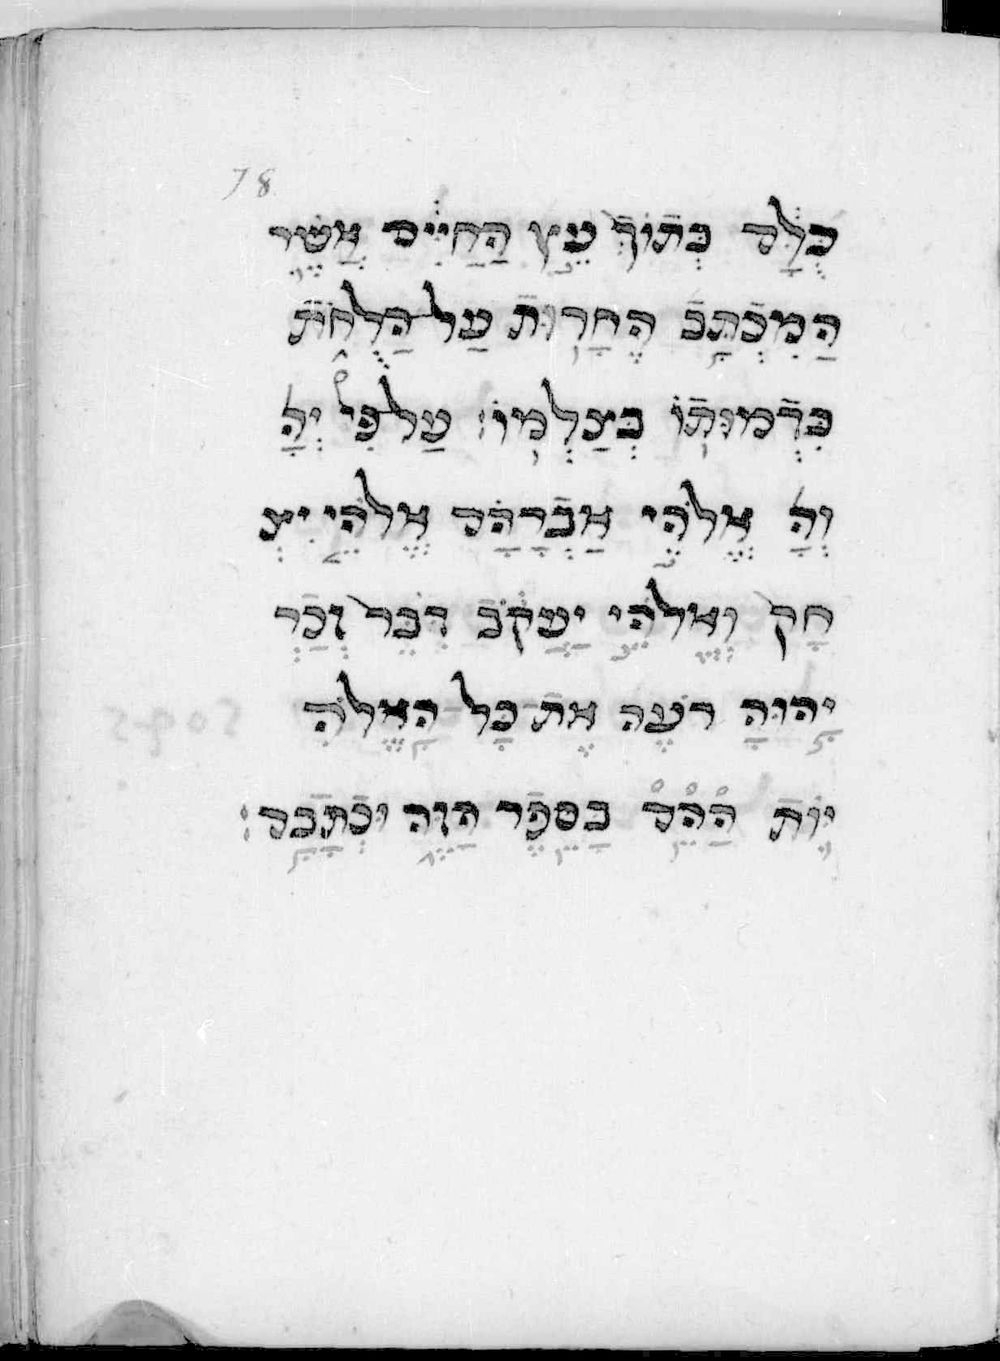 78
כֻּלָּם בְּתוֹךְ עֵץ הַחַיִּים אֲשֶׁר
הַמִּכְתָּב הֶחָרוּת עַל הַלֻּחֹת
בִּדְמוּתוֹ בְּצַלְמוֹ׃ עַל פִּי יְהָ
וְהָ אֱלֹהֵי אַבְרָהָם אֱלֹהֵי יִצְ
חָק וֶאֱלֹהֵי יַעֲקֹב דִּבֶּר וְכַרְ
יָהוּהָ רֹעֶה אֶת כָּל הָאֱלֹהִ
יּוֹת הָהֵם בַּסֵּפֶר הַזֶּה וּכְתָבָם׃